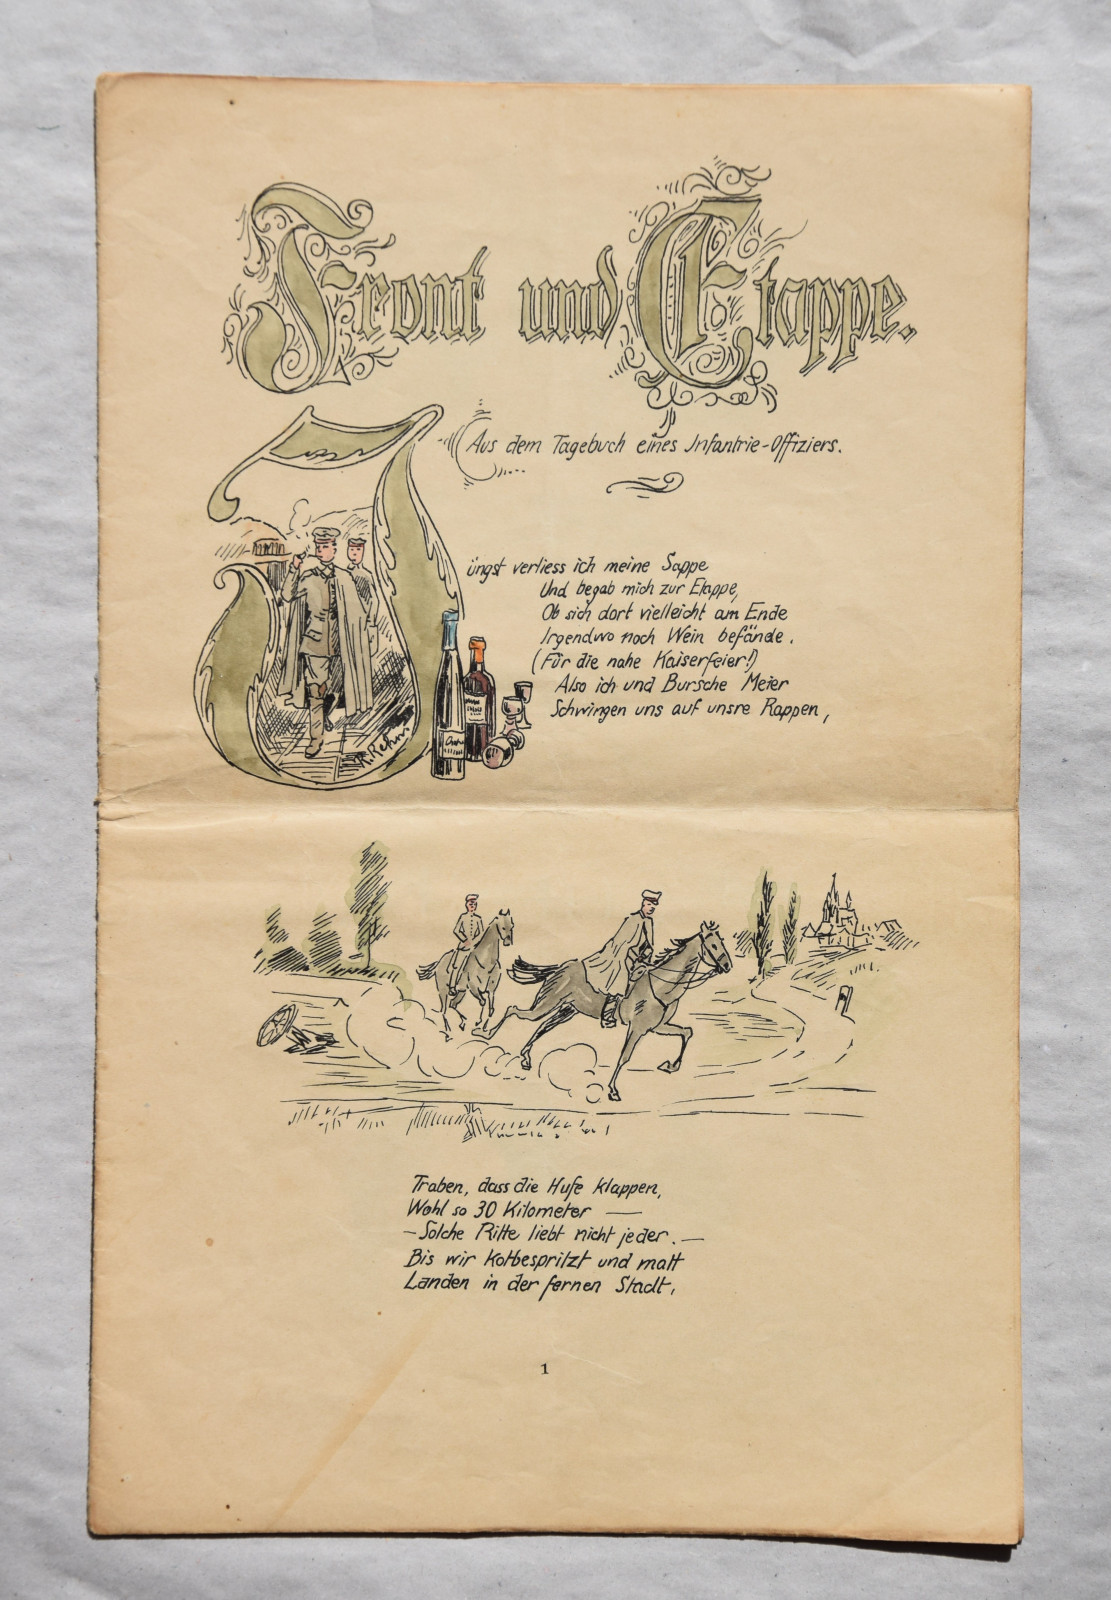 Front und Etappe.
Aus dem Tagebuch eines Infantrie-Offiziers.
Jüngst verliess ich meine Sappe
Und begab mich zur Etappe,
Ob sich dort vielleicht am Ende
Irgendwo noch Wein befände.
(Für die nahe Kaiserfeier!)
Also ich und Bursche Meier
Schwingen uns auf unsre Rappen,
R. Rehm
Traben, dass die Hufe klappen,
Wohl so 30 Kilometer —
— Solche Ritte liebt nicht jeder. —
Bis wir kotbespritzt und matt
Landen in der fernen Stadt,
1